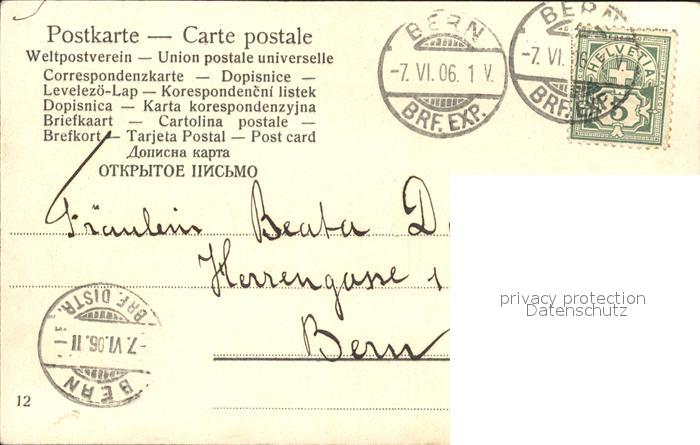 Postkarte — Carte postale
Weltpostverein — Union postale universelle
Correspondenzkarte — Dopisnice —
Levelező-Lap — Korespondenční listek
Dopisnica — Karta korespondenzyjna
Briefkaart — Cartolina postale —
Brefkort — Tarjeta Postal — Post card
Дописна карта
ОТКРЫТОЕ ПИСЬМО
BERN
-7. VI. 06. 1 V.
BRF. EXP.
BERN
-7. VI. 06. V.
BRF. EXP.
HELVETIA
FRANCO
5
Fräulein Beata D
Herrengasse 1
Bern
BRF. DISTR.
-7. VI. 06. II
BERN
12
privacy protection
Datenschutz